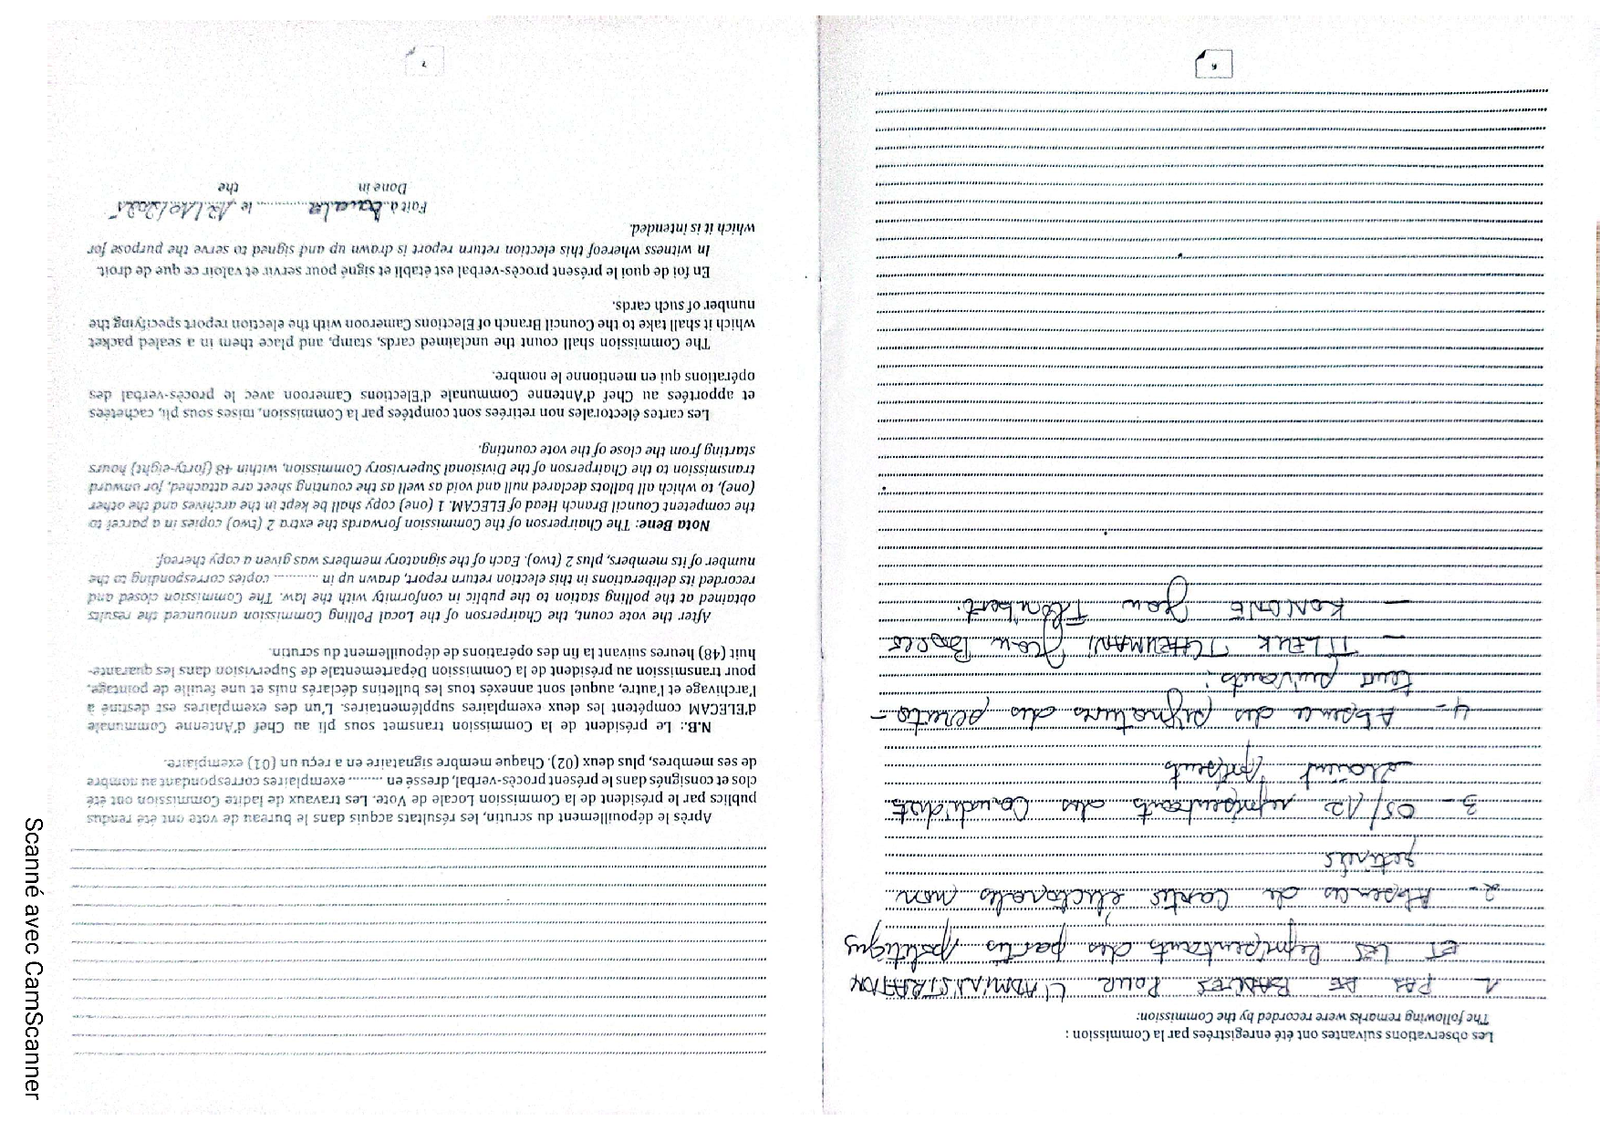 Les observations suivantes ont été enregistrées par la Commission :
The following remarks were recorded by the Commission:
1 PAS DE BADGES POUR L'ADMINISTRATION
ET LES Représentants des partis politiqus
2- Absences de Cartes électorales non
retirées
3- 05/12 représentants des Candidats
étaient présents
4- Absence des signatures des scruta-
teurs suivants:
— TILEUK TCHEUMANI Jean Bosco
— KONONE Jean Flaubert.
6
Après le dépouillement du scrutin, les résultats acquis dans le bureau de vote ont été rendus
publics par le président de la Commission Locale de Vote. Les travaux de ladite Commission ont été
clos et consignés dans le présent procès-verbal, dressé en ......... exemplaires correspondant au nombre
de ses membres, plus deux (02). Chaque membre signataire en a reçu un (01) exemplaire.
N.B.: Le président de la Commission transmet sous pli au Chef d'Antenne Communale
d'ELECAM compétent les deux exemplaires supplémentaires. L'un des exemplaires est destiné à
l'archivage et l'autre, auquel sont annexés tous les bulletins déclarés nuls et une feuille de pointage,
pour transmission au président de la Commission Départementale de Supervision dans les quarante-
huit (48) heures suivant la fin des opérations de dépouillement du scrutin.
After the vote count, the Chairperson of the Local Polling Commission announced the results
obtained at the polling station to the public in conformity with the law. The Commission closed and
recorded its deliberations in this election return report, drawn up in ........... copies corresponding to the
number of its members, plus 2 (two). Each of the signatory members was given a copy thereof.
Nota Bene: The Chairperson of the Commission forwards the extra 2 (two) copies in a parcel to
the competent Council Branch Head of ELECAM. 1 (one) copy shall be kept in the archives and the other
(one), to which all ballots declared null and void as well as the counting sheet are attached, for onward
transmission to the Chairperson of the Divisional Supervisory Commission, within 48 (forty-eight) hours
starting from the close of the vote counting.
Les cartes électorales non retirées sont comptées par la Commission, mises sous pli, cachetées
et apportées au Chef d'Antenne Communale d'Elections Cameroon avec le procès-verbal des
opérations qui en mentionne le nombre.
The Commission shall count the unclaimed cards, stamp, and place them in a sealed packet
which it shall take to the Council Branch of Elections Cameroon with the election report specifying the
number of such cards.
En foi de quoi le présent procès-verbal est établi et signé pour servir et valoir ce que de droit.
In witness whereof this election return report is drawn up and signed to serve the purpose for
which it is intended.
Fait à Douala le 12/10/2025
Done in the
7
Scanné avec CamScanner